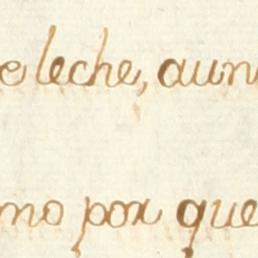 e leche, aun
mo por que